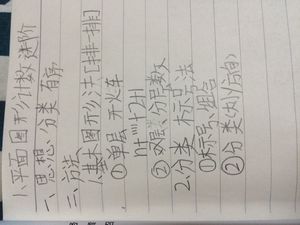 1、平面图形计数进阶
一、思想：分类 有序
三、方法
1.基本图形法[排一排]
①单层 开火车
n+…+2+1
②双层、分层数
2.分类 标号法
①标号、组合
②分类(大小/方向)